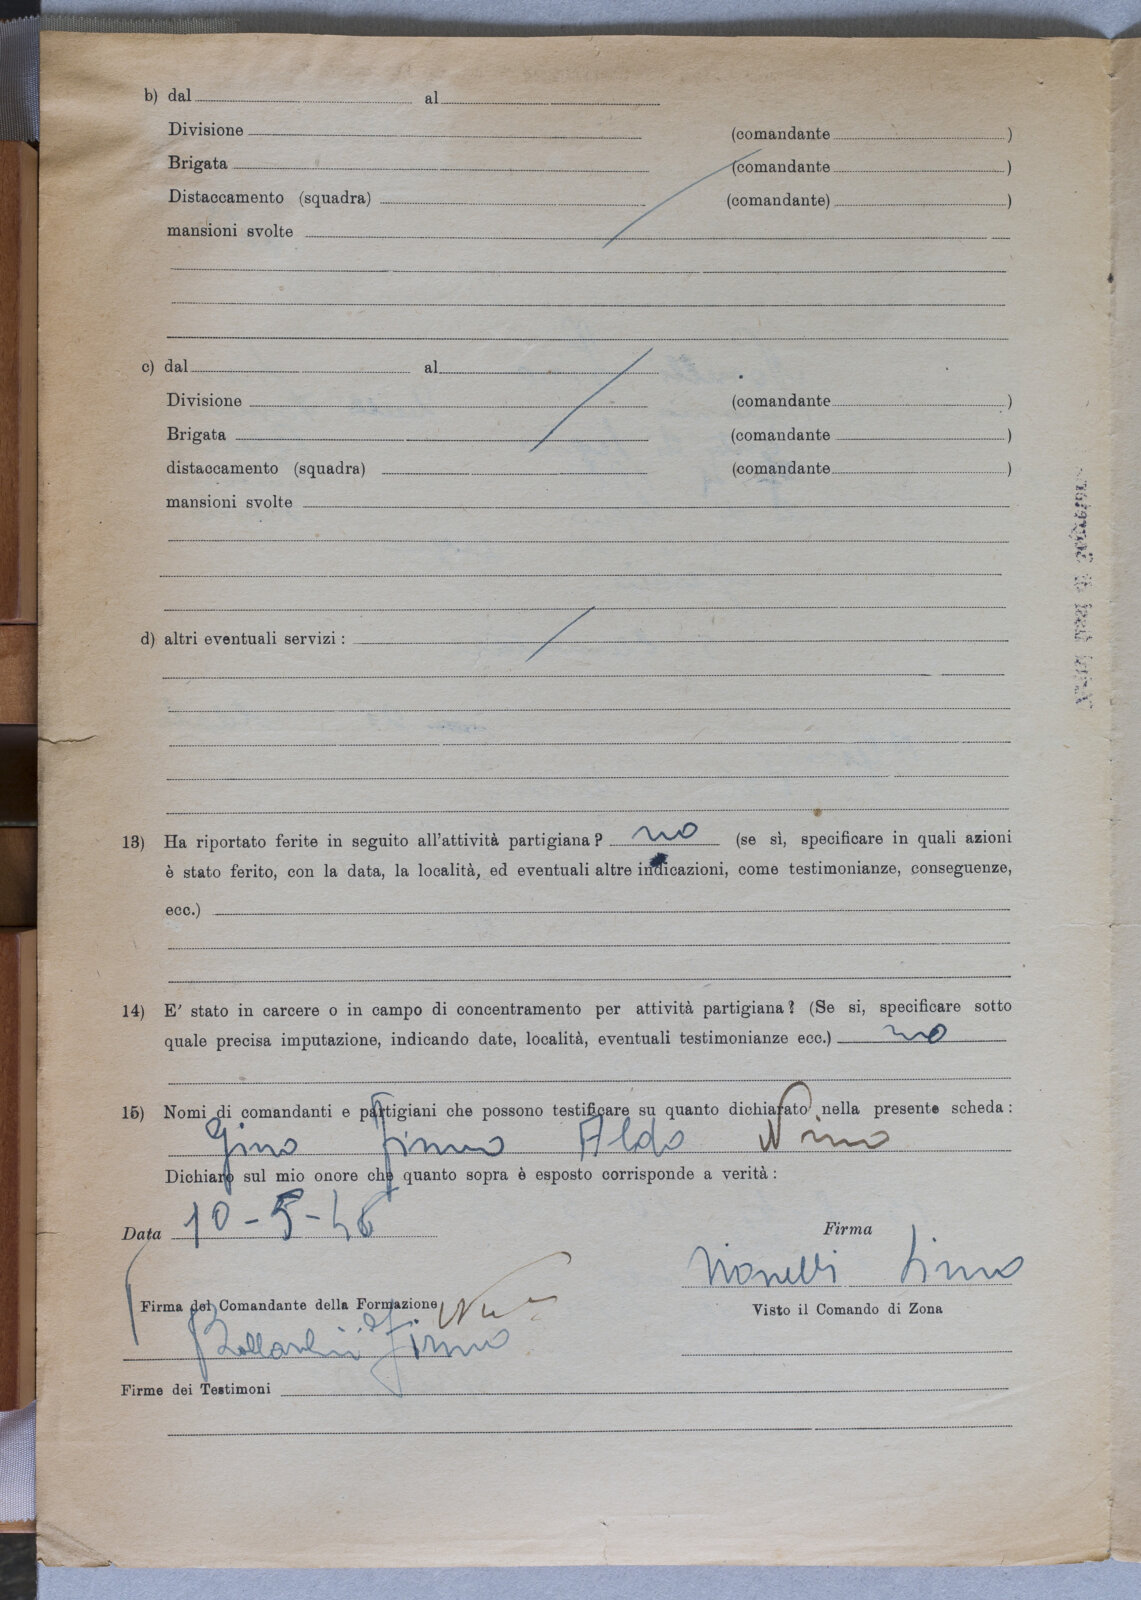 b) dal al
Divisione (comandante )
Brigata (comandante )
Distaccamento (squadra) (comandante) )
mansioni svolte
c) dal al
Divisione (comandante )
Brigata (comandante )
distaccamento (squadra) (comandante )
mansioni svolte
d) altri eventuali servizi :
13) Ha riportato ferite in seguito all'attività partigiana ? no (se sì, specificare in quali azioni
è stato ferito, con la data, la località, ed eventuali altre indicazioni, come testimonianze, conseguenze,
ecc.)
14) E' stato in carcere o in campo di concentramento per attività partigiana ? (Se si, specificare sotto
quale precisa imputazione, indicando date, località, eventuali testimonianze ecc.) no
15) Nomi di comandanti e partigiani che possono testificare su quanto dichiarato nella presente scheda :
Gino Firmo Aldo Nino
Dichiaro sul mio onore che quanto sopra è esposto corrisponde a verità :
Data 10-5-46
Firma
Firma del Comandante della Formazione
Visto il Comando di Zona
Firmo
Firme dei Testimoni